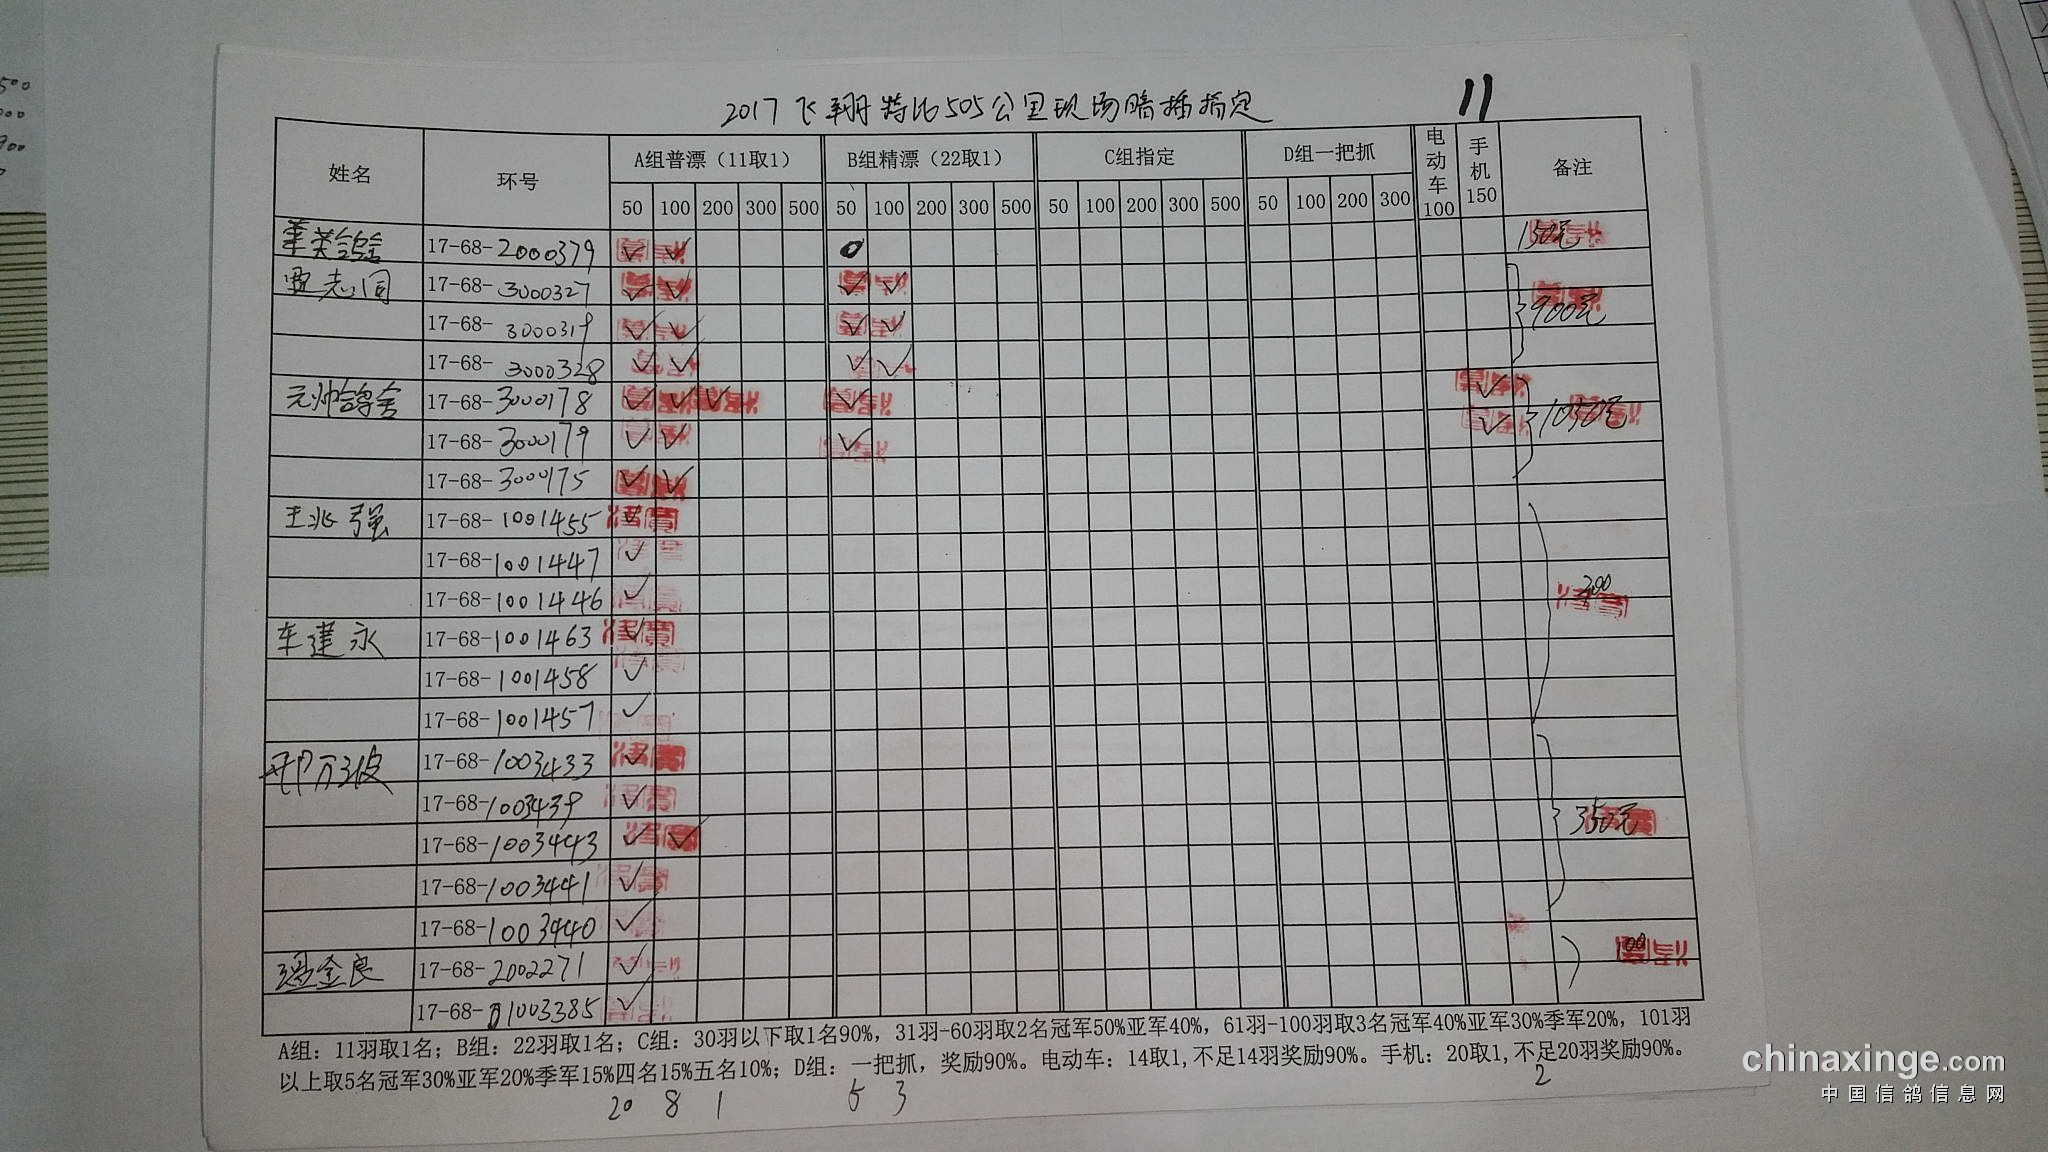 2017飞翔特比505公里现场暗插指定 11
姓名 环号 A组普漂（11取1） B组精漂（22取1） C组指定 D组一把抓 电动车100 手机150 备注
50 100 200 300 500 50 100 200 300 500 50 100 200 300 500 50 100 200 300
17-68-2000379 ✓ ✓ 150元
17-68-3000327 ✓ ✓ ✓ ✓
17-68-3000319 ✓ ✓ ✓ ✓ 900元
17-68-3000328 ✓ ✓ ✓ ✓
元帅鸽舍 17-68-3000178 ✓ ✓ ✓ ✓ ✓
17-68-3000179 ✓ ✓ ✓ ✓ 1050元
17-68-3000175 ✓ ✓
王兆强 17-68-1001455 ✓
17-68-1001447 ✓
17-68-1001446 ✓ 300
车建永 17-68-1001463 ✓
17-68-1001458 ✓
17-68-1001457 ✓
邢万波 17-68-1003433 ✓
17-68-1003439 ✓
17-68-1003443 ✓ ✓ 350元
17-68-1003441 ✓
17-68-1003440 ✓
金良 17-68-2002271 ✓ 100
17-68-01003385 ✓
A组：11羽取1名；B组：22羽取1名；C组：30羽以下取1名90%，31羽-60羽取2名冠军50%亚军40%，61羽-100羽取3名冠军40%亚军30%季军20%，101羽
以上取5名冠军30%亚军20%季军15%四名15%五名10%；D组：一把抓，奖励90%。电动车：14取1,不足14羽奖励90%。手机：20取1,不足20羽奖励90%。
20 8 1 5 3 2
chinaxinge.com
中国信鸽信息网